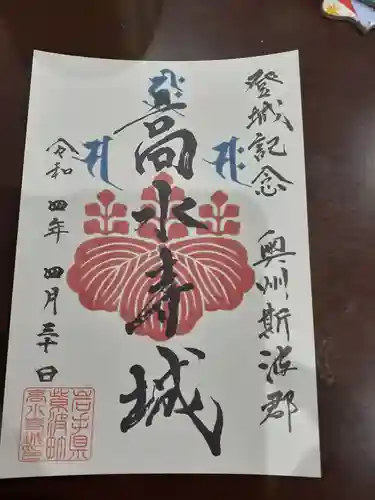 登城記念
奥州斯波郡
高水寺城
令和四年四月三十日
岩手県
紫波町
高水寺城